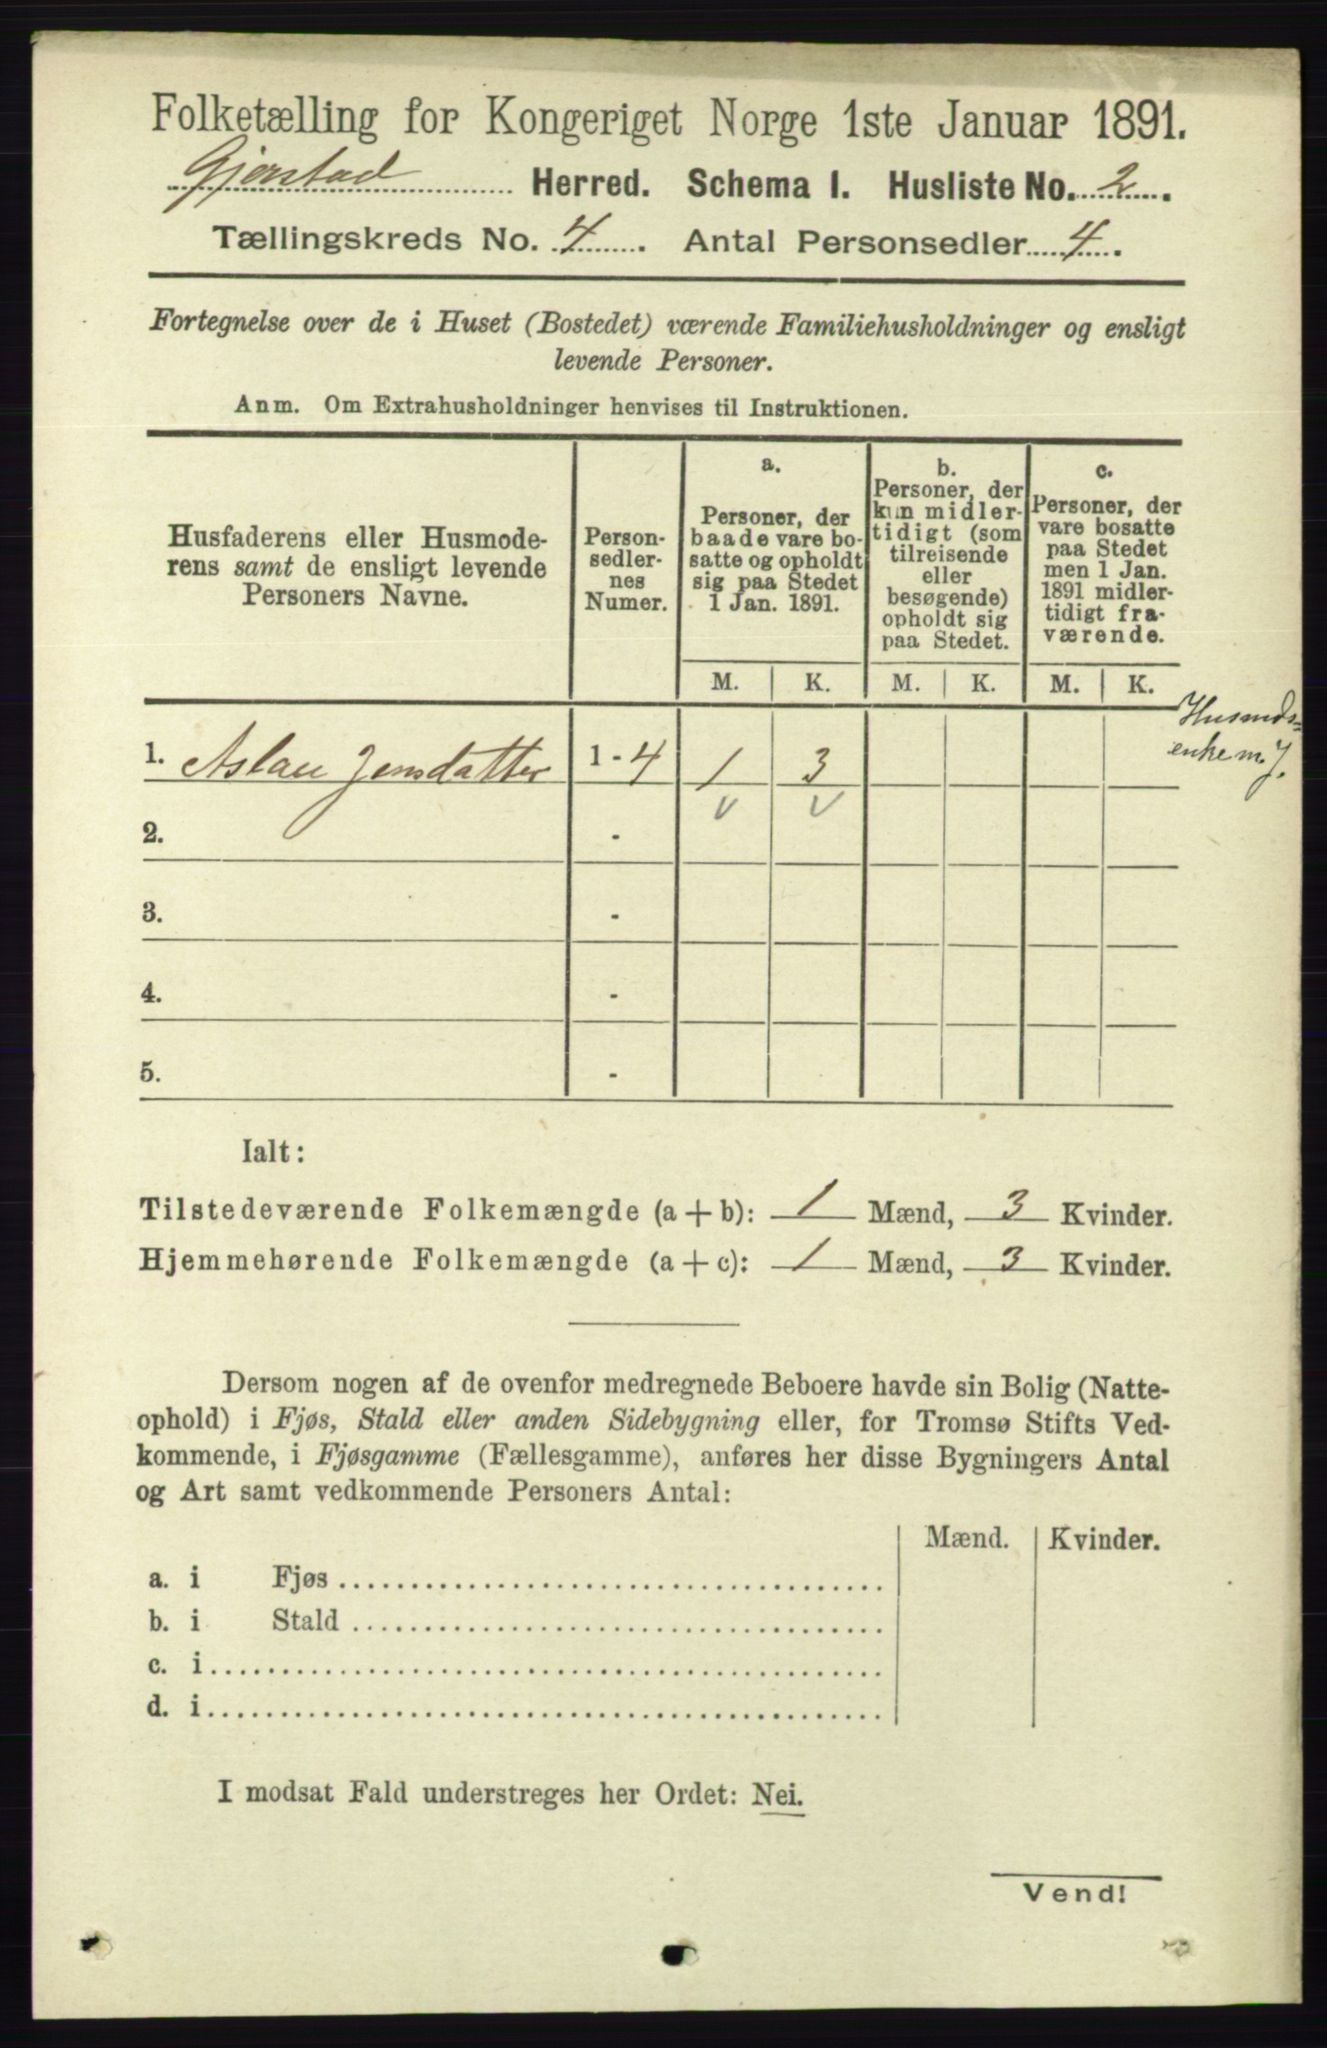 Folketælling for Kongeriget Norge 1ste Januar 1891.
Gjerstad Herred. Schema I. Husliste No. 2.
Tællingskreds No. 4. Antal Personsedler 4.
Fortegnelse over de i Huset (Bostedet) værende Familiehusholdninger og ensligt
levende Personer.
Anm. Om Extrahusholdninger henvises til Instruktionen.
Husfaderens eller Husmode-
rens samt de ensligt levende
Personers Navne.
Person-
sedler-
nes
Numer.
a.
Personer, der
baade vare bo-
satte og opholdt
sig paa Stedet
1 Jan. 1891.
b.
Personer, der
kun midler-
tidigt (som
tilreisende
eller
besøgende)
opholdt sig
paa Stedet.
c.
Personer, der
vare bosatte
paa Stedet
men 1 Jan.
1891 midler-
tidigt fra-
værende.
M. K. M. K. M. K.
Husmds=
enke m. J.
1. Aslau Jensdatter 1 - 4 1 3
2. -
3. -
4. -
5. -
Ialt:
Tilstedeværende Folkemængde (a + b): 1 Mænd, 3 Kvinder.
Hjemmehørende Folkemængde (a + c): 1 Mænd, 3 Kvinder.
Dersom nogen af de ovenfor medregnede Beboere havde sin Bolig (Natte-
ophold) i Fjøs, Stald eller anden Sidebygning eller, for Tromsø Stifts Ved-
kommende, i Fjøsgamme (Fællesgamme), anføres her disse Bygningers Antal
og Art samt vedkommende Personers Antal:
Mænd. Kvinder.
a. i Fjøs
b. i Stald
c. i
d. i
I modsat Fald understreges her Ordet: Nei.
Vend!